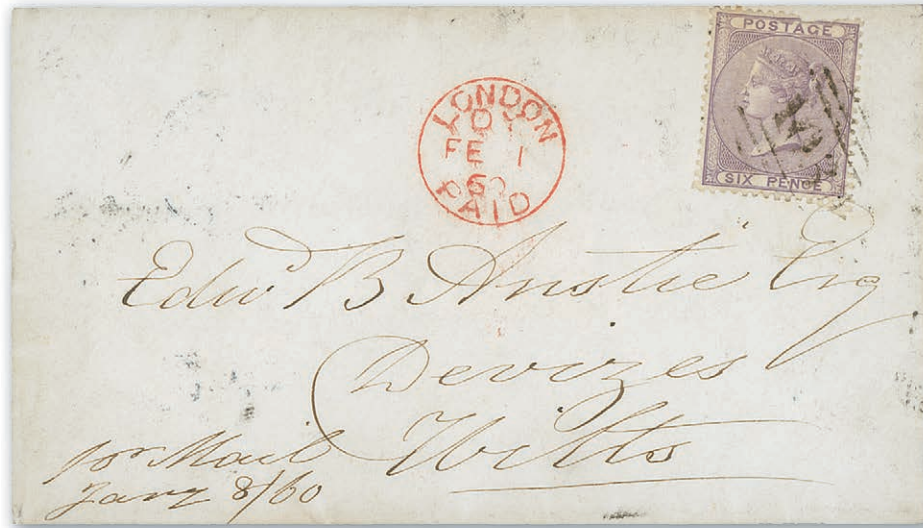 POSTAGE
SIX PENCE
LONDON
DY
FE 1
60
PAID
Edwd B Anstie Esq
Devizes
Wilts
pr Mail
Jany 8/60